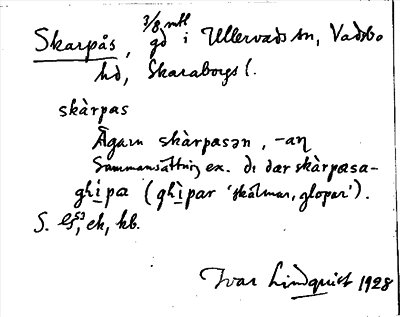 Skarpås, 3/8 mtl gd i Ullervads sn, Vadsbo
hd, Skaraborgs l.
skàrpas
Ägarn skàrpasən, -aŋ
Sammansättning ex. di dær skàrpasa-
ghìpa (ghìpar 'skålmar, glopar').
S. ek, kb.
Ivar Lindquist 1928